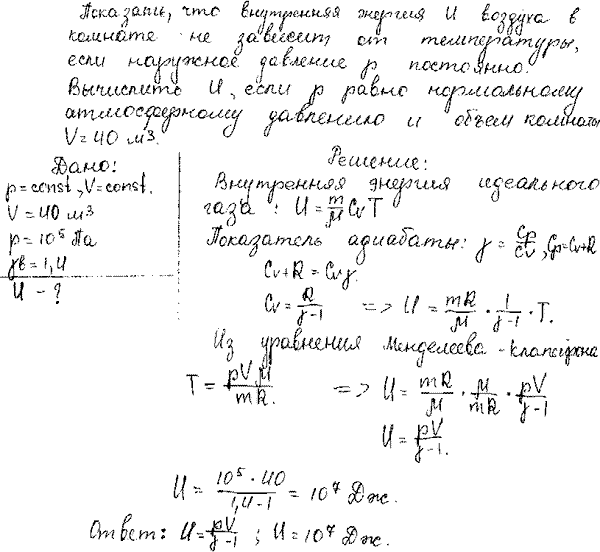 Показать, что внутренняя энергия U воздуха в
комнате не зависит от температуры,
если наружное давление p постоянно.
Вычислить U, если p равно нормальному
атмосферному давлению и объем комнаты
V=40 м³.
Дано:
p=const, V=const.
V=40 м³
p=10⁵ Па
γв=1,4
U - ?
Решение:
Внутренняя энергия идеального
газа: U = m/M CvT
Показатель адиабаты: γ = Cp/Cv, Cp=Cv+R
Cv+R = Cvγ.
Cv = R/γ-1 => U = mR/M · 1/γ-1 · T.
Из уравнения Менделеева-Клапейрона
T = pVM/mR. => U = mR/M · M/mR · pV/γ-1
U = pV/γ-1.
U = 10⁵ · 40/1,4-1 = 10⁷ Дж.
Ответ: U = pV/γ-1 ; U = 10⁷ Дж.